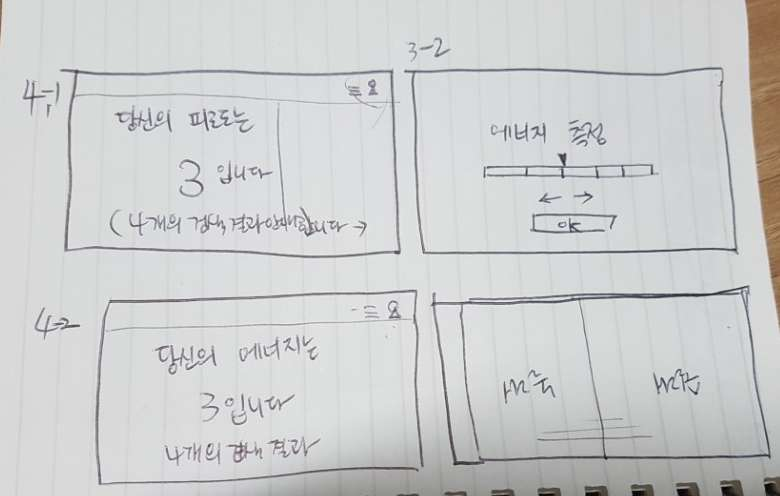 4-1
당신의 피로도는
3 입니다
(4개의 검색결과 안내합니다 →
3-2
에너지 측정
← →
OK
4-2
당신의 에너지는
3입니다
4개의 검색 결과